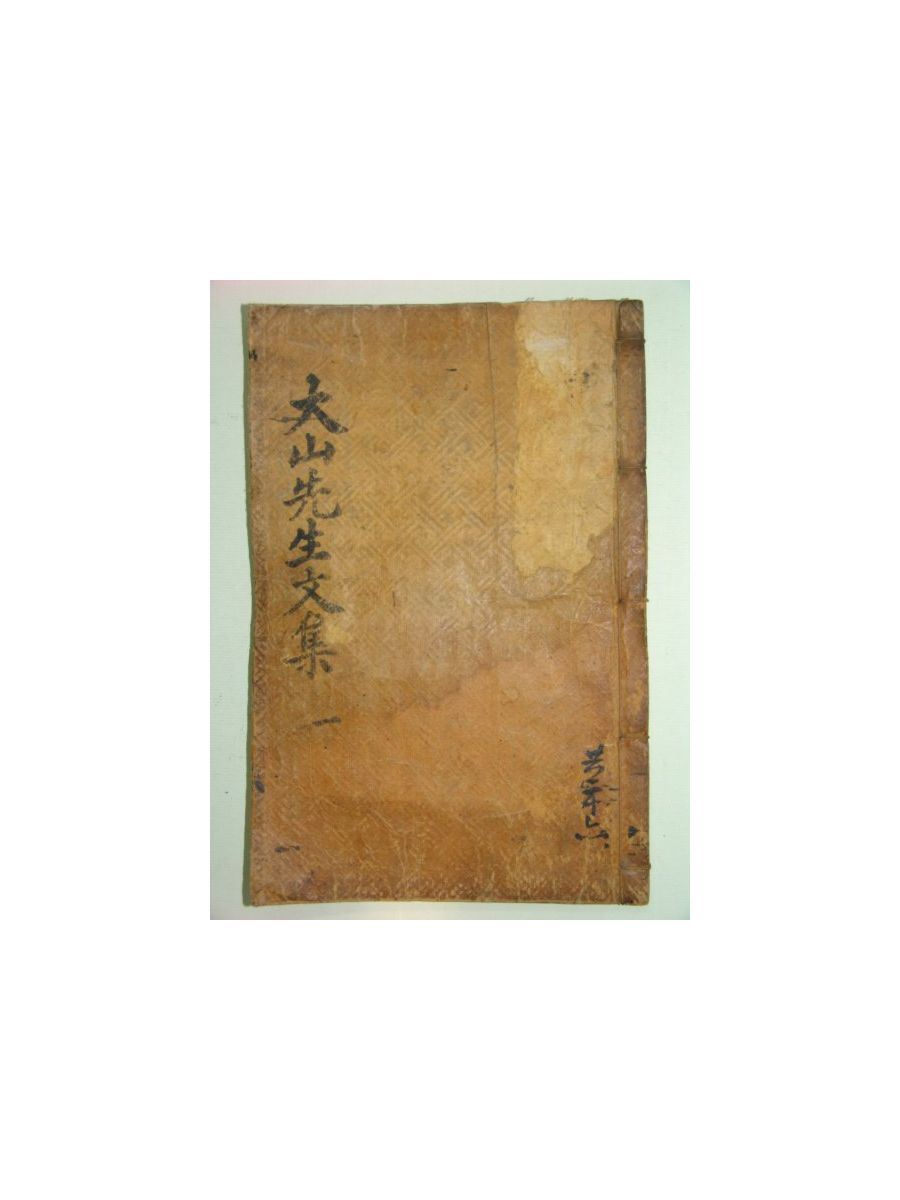 大山先生文集 一
共
六